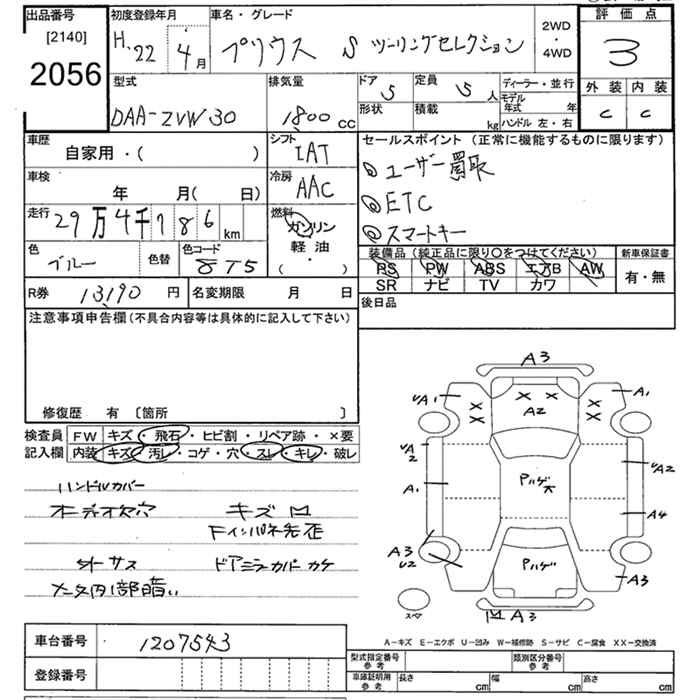 出品番号
[2140]
2056
初度登録年月
H. 22 4 月
車名・グレード
プリウス S ツーリングセレクション
2WD
・
4WD
評価点
3
外装 内装
C C
型式
DAA-ZVW30
排気量
1800 cc
ドア
5
定員
5 人
形状
積載
kg
ディーラー・並行
モデル年式 年
ハンドル 左・右
車歴
自家用・( )
シフト
IAT
車検
年 月( 日)
冷房
AAC
走行
29万4千186 km
燃料
ガソリン
軽油
( ・ )
色
ブルー
色替
色コード
8T5
セールスポイント (正常に機能するものに限ります)
◎ユーザー買取
◎ETC
◎スマートキー
装備品 (純正品に限り〇をつけてください)
PS PW ABS エアB AW
SR ナビ TV カワ
新車保証書
有・無
R券 13,190 円
名変期限 月 日
後日品
注意事項申告欄(不具合内容等は具体的に記入して下さい)
修復歴 有 〔箇所 〕
検査員
記入欄
FW キズ・飛石・ヒビ割・リペア跡・×要
内装 キズ・汚レ・コゲ・穴・スレ・キレ・破レ
ハンドルカバー
オーディオ欠穴 キズ凹
Fインパネ先歪
ターサス ドアミラーカバーカケ
メータ内1部暗い
A3
UA1
A2
A1
UA2
Pハゲ大
UA2
A1
A4
A3
U2
Pハゲ
A3
スペア
凹 A3
A-キズ E-エクボ U-凹み W-補修跡 S-サビ C-腐食 XX-交換済
車台番号 1207543
登録番号
型式指定番号
参考
類別区分番号
参考
車庫証明用
参考
長さ cm
幅 cm
高さ cm